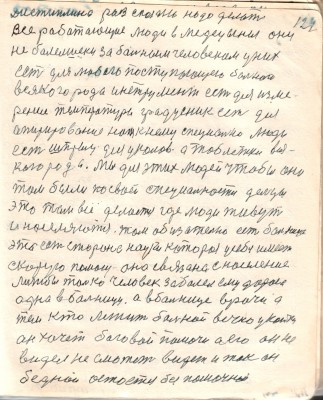 дисциплина раз сказано надо делать
124
все работающие люди в медецыне они
не болельщики за больным человеком у них
ест для любого поступающего больного
всякого рода инструмент ест для изме-
рение температури градусник ест для
специално люды
ест шприц для уколов. а таблетки вся-
кого рода. Мы для этих людей чтобы они
там были по своей специалности делали
это там всё делается где люди живут
и населяются. там обязателно ест болница
это ест сторона наука которая у себя имеет
скорую помощ. она связана с население
лишбы толко человек заболел ему дорога
одна в балницу. а в балнице врачи а
тем кто лежит болной вечко у койки
он хочет боговой помочи а его он не
видел не сможет видет и так он
бедной остается без помочной